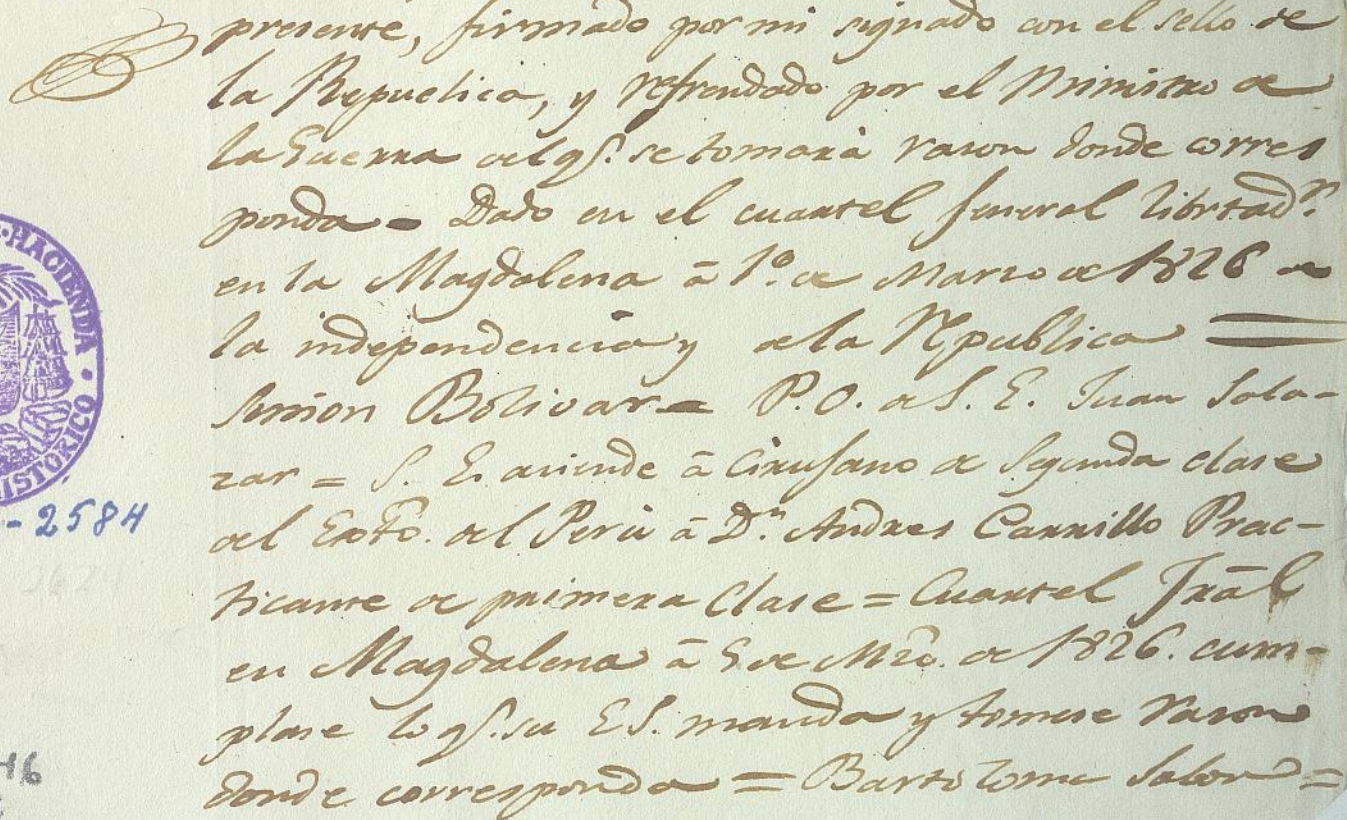 presente, firmado por mi signado con el sello de
la Republica, y refrendado por el Ministro de
la Guerra del qe. se tomará rason donde corres
ponda = Dado en el cuartel General Libertadr.
en la Magdalena á 1º. de Marzo de 1826 de
la independencia y de la Republica =
Simon Bolivar = P.O. de S. E. Juan Sala-
zar = S. E. aciende á Cirujano de Segunda clase
del Exto. del Perú á Dn. Andres Carrillo Prac-
ticante de primera Clase = Cuartel Jrãl
en Magdalena á 5 de Mzo. de 1826. cum-
plase lo qe. su ES. manda y tomese rason
donde corresponda = Bartolome Salom =
HACIENDA
HISTORICO
-2584
46